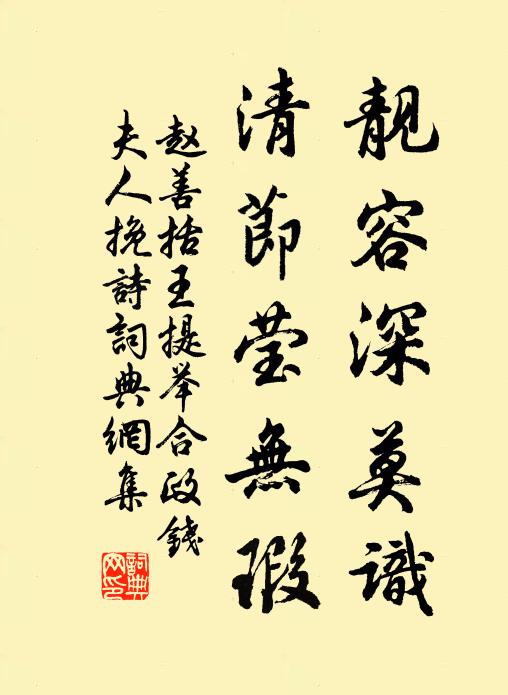 靓容深莫識
清節莹無瑕
赵善括王提举合政錢
夫人挽詩詞典網集
詞典
网印